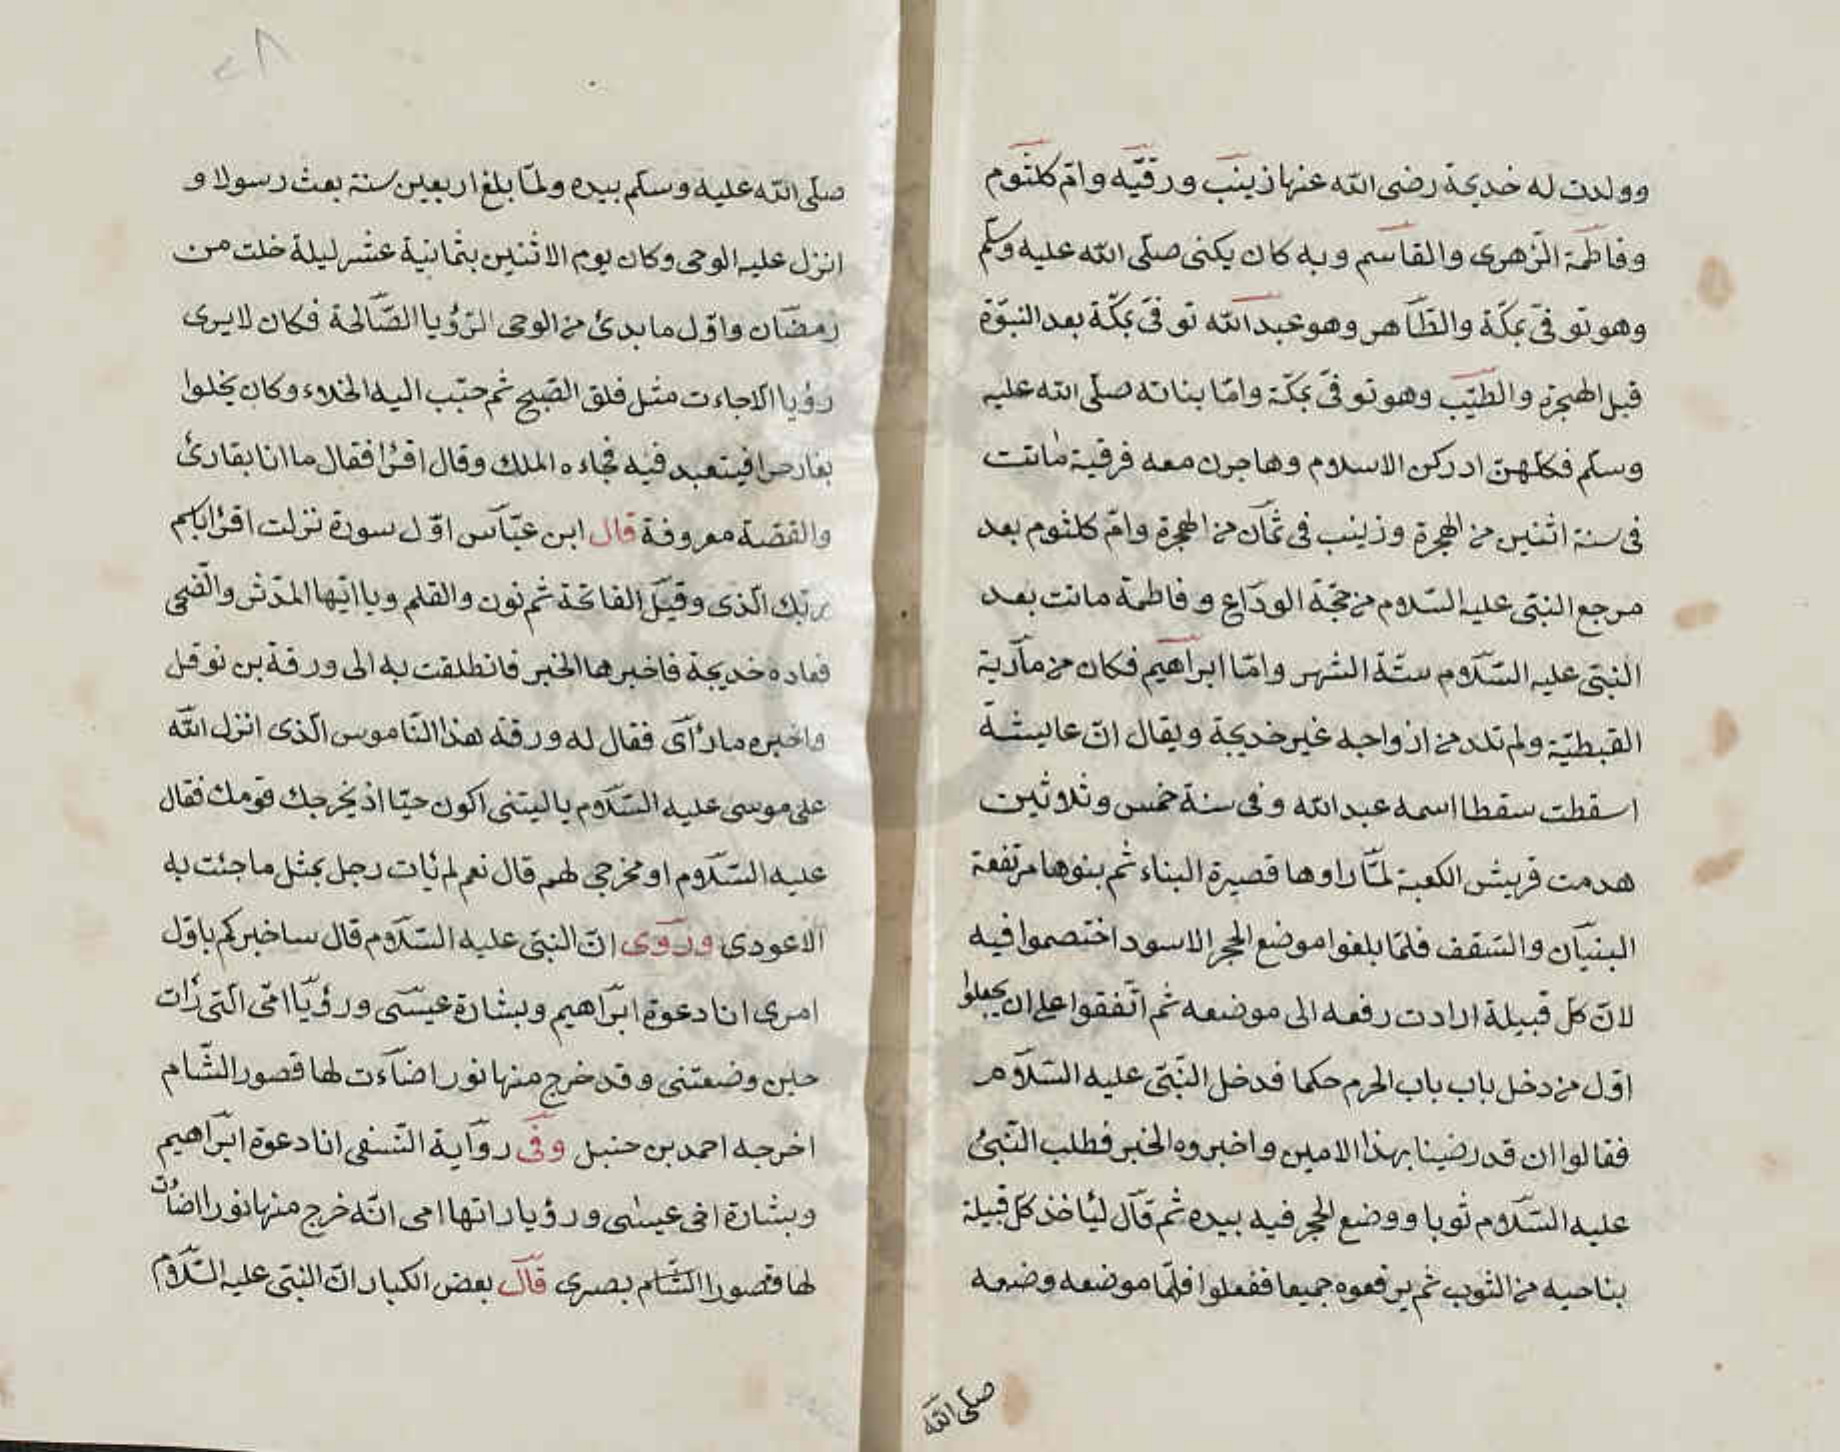 وولدت له خديجة رضى الله عنها زينب ورقيّه وامّ كلثوم
وفاطمة الزّهرى والقاسم وبه كان يكنى صلّى الله عليه وسلّم
وهو توفىّ بمكّة والطّاهر وهو عبد الله توفىّ بمكّة بعد النبوّة
قبل الهجرة والطيّب وهو توفىّ بمكّة وامّا بناته صلّى الله عليه
وسلّم فكلهنّ ادركن الاسلام وهاجرن معه فرقية ماتت
فى سنة اثنين من الهجرة وزينب فى ثمان من الهجرة وامّ كلثوم بعد
مرجع النبىّ عليه السّلام من حجّة الوداع وفاطمة ماتت بعد
النبىّ عليه السّلام ستّة الشهر وامّا ابراهيم فكان من مارية
القبطيّة ولم تلد من ازواجه غير خديجة ويقال انّ عايشة
اسقطت سقطا اسمه عبد الله وفى سنة خمس وثلاثين
هدمت قريش الكعبة لمّا راوها قصيرة البناء ثم بنوها مرتفعة
البنيان والسّقف فلمّا بلغوا موضع الحجر الاسود اختصموا فيه
لانّ كلّ قبيلة ارادت رفعه الى موضعه ثم اتّفقوا على ان يجعلوا
اوّل من دخل باب باب الحرم حكما فدخل النّبىّ عليه السّلام
فقالوا ان قد رضينا بهذا الامين واخبروه الخبر فطلب النّبىّ
عليه السّلام ثوبا ووضع الحجر فيه بيده ثم قال ليأخذ كلّ قبيلة
بناحيه من الثوب ثم يرفعوه جميعا ففعلوا فلمّا موضعه وضعه
صلّى الله
صلّى الله عليه وسلّم بيده ولمّا بلغ اربعين سنة بعث رسولا و
انزل عليه الوحى وكان يوم الاثنين بثمانية عشر ليلة خلت من
رمضان واوّل ما بدئ من الوحى الرّؤيا الصّالحة فكان لا يرى
رؤيا الّا جاءت مثل فلق الصّبح ثم حبّب اليه الخلاء وكان يخلوا
بغار حرا فيتعبد فيه فجاءه الملك وقال اقرأ فقال ما انا بقارئ
والقصّة معروفة قال ابن عبّاس اوّل سورة نزلت اقرأ باسم
ربّك الّذى وقيل الفاتحة ثم نون والقلم ويا ايّها المدّثر والضّحى
فعاده خديجة فاخبرها الخبر فانطلقت به الى ورقة بن نوفل
واخبره ما رأى فقال له ورقة هذا النّاموس الّذى انزل الله
على موسى عليه السّلام يا ليتنى اكون حيّا اذ يخرجك قومك فقال
عليه السّلام او مخرجى لهم قال نعم لم يأت رجل بمثل ما جئت به
الا عودى وروى انّ النبىّ عليه السّلام قال ساخبركم باوّل
امرى انا دعوة ابراهيم وبشارة عيسى ورؤيا امّى الّتى رأت
حين وضعتنى وقد خرج منها نور اضاءت لها قصور الشّام
اخرجه احمد بن حنبل وفى رواية النّسفى انا دعوة ابراهيم
وبشارة اخى عيسى ورؤيا راتها امى انّه خرج منها نورا اضأت
لها قصورا الشّام بصرى قال بعض الكبار انّ النبىّ عليه السّلام